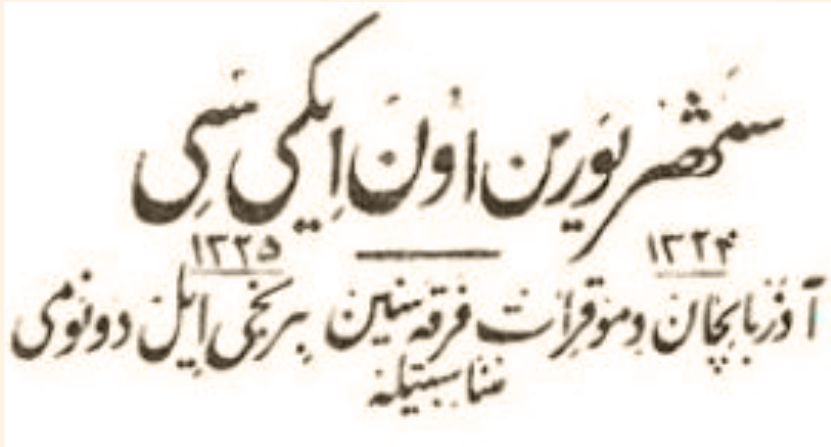 شهریورین اون ایکی سی
۱۳۲۴ ۱۳۲۵
آذربایجان دموقرات فرقه سنین بیرنجی ایل دونومی
مناسبتیله